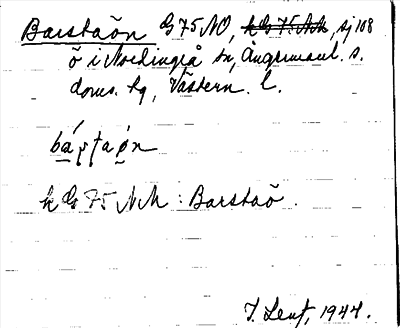 Barstaön G 75 NO, k G 75 NM, sj 108
ö i Nordingrå sn, Ångermanl. s.
doms. hg, Västern. l.
bárstaön
k G 75 NM : Barstaö.
1944.